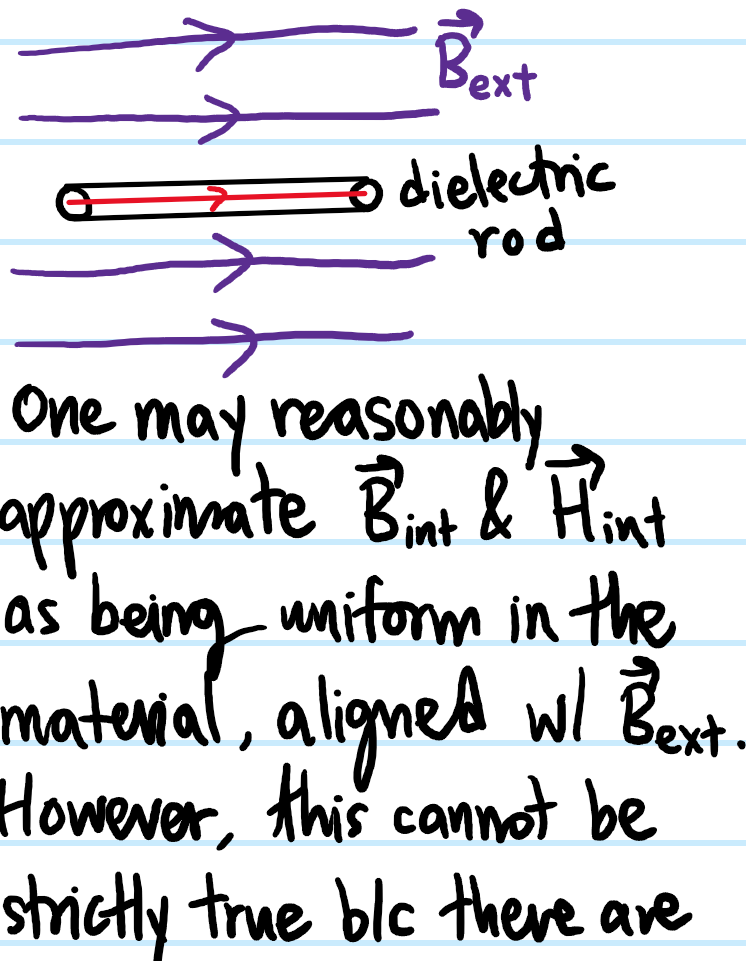 B⃗ext
dielectric
rod
One may reasonably
approximate B⃗int & H⃗int
as being uniform in the
material, aligned w/ B⃗ext.
However, this cannot be
strictly true b/c there are